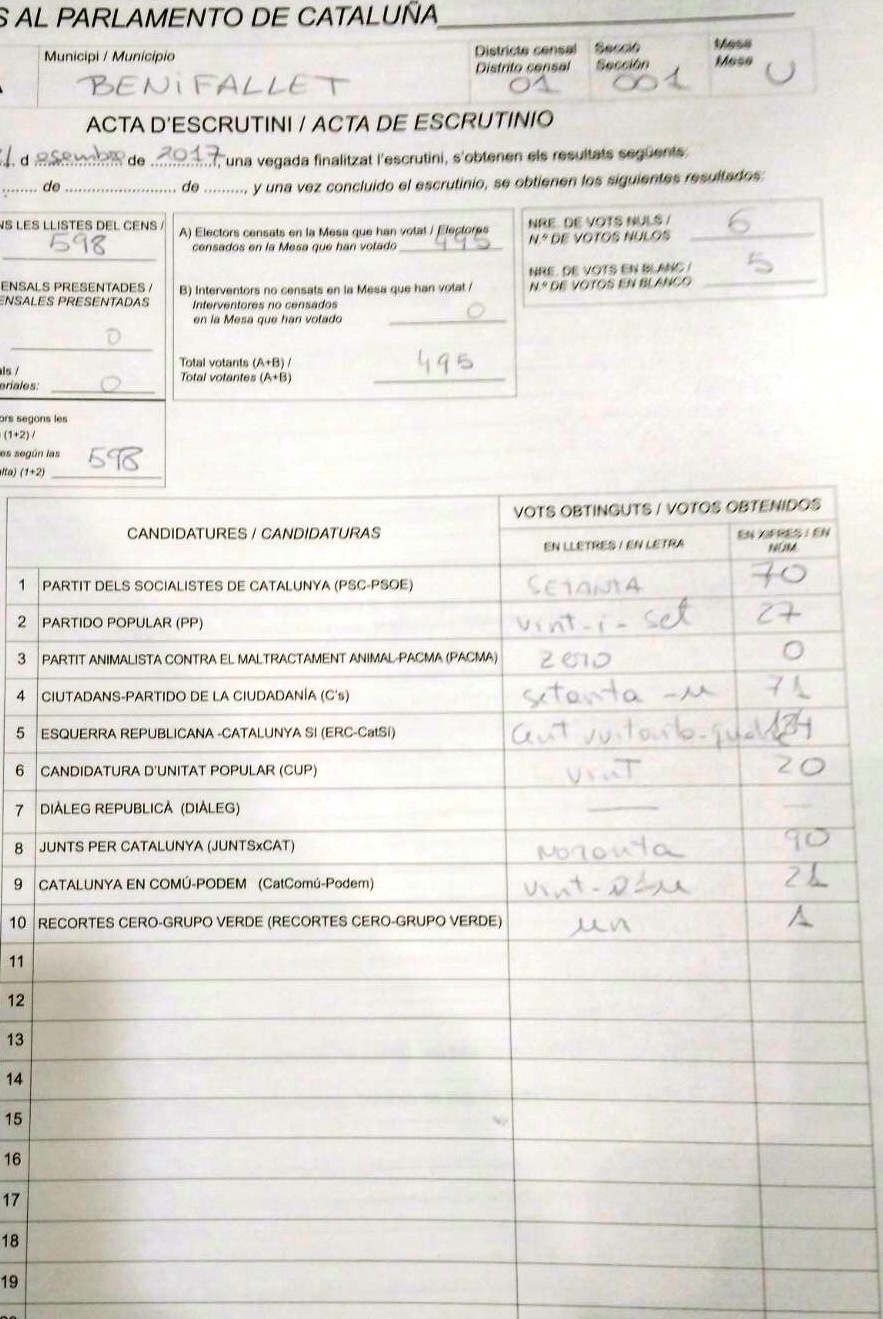 S AL PARLAMENTO DE CATALUÑA
Municipi / Municipio
BENIFALLET
Districte censal
Distrito censal
01
Secció
Sección
001
Mesa
Mesa
U
ACTA D'ESCRUTINI / ACTA DE ESCRUTINIO
d esembre de 2017, una vegada finalitzat l'escrutini, s'obtenen els resultats següents:
de de , y una vez concluido el escrutinio, se obtienen los siguientes resultados:
NS LES LLISTES DEL CENS /
598
ENSALS PRESENTADES /
ENSALES PRESENTADAS
0
als /
eriales: 0
ors segons les
(1+2) /
es según las
alta) (1+2) 598
A) Electors censats en la Mesa que han votat / Electores
censados en la Mesa que han votado 495
B) Interventors no censats en la Mesa que han votat /
Interventores no censados
en la Mesa que han votado 0
Total votants (A+B) /
Total votantes (A+B) 495
NRE. DE VOTS NULS /
N.º DE VOTOS NULOS 6
NRE. DE VOTS EN BLANC /
N.º DE VOTOS EN BLANCO 5
CANDIDATURES / CANDIDATURAS
VOTS OBTINGUTS / VOTOS OBTENIDOS
EN LLETRES / EN LETRA
EN XIFRES / EN
NÚM.
1 PARTIT DELS SOCIALISTES DE CATALUNYA (PSC-PSOE) SETANTA 70
2 PARTIDO POPULAR (PP) vint-i-set 27
3 PARTIT ANIMALISTA CONTRA EL MALTRACTAMENT ANIMAL-PACMA (PACMA) zero 0
4 CIUTADANS-PARTIDO DE LA CIUDADANÍA (C's) setanta-u 71
5 ESQUERRA REPUBLICANA -CATALUNYA SI (ERC-CatSí) Cent vuitanta-quatre 184
6 CANDIDATURA D'UNITAT POPULAR (CUP) vinT 20
7 DIÀLEG REPUBLICÀ (DIÀLEG) — —
8 JUNTS PER CATALUNYA (JUNTSxCAT) noranta 90
9 CATALUNYA EN COMÚ-PODEM (CatComú-Podem) vint-i-u 21
10 RECORTES CERO-GRUPO VERDE (RECORTES CERO-GRUPO VERDE) un 1
11
12
13
14
15
16
17
18
19